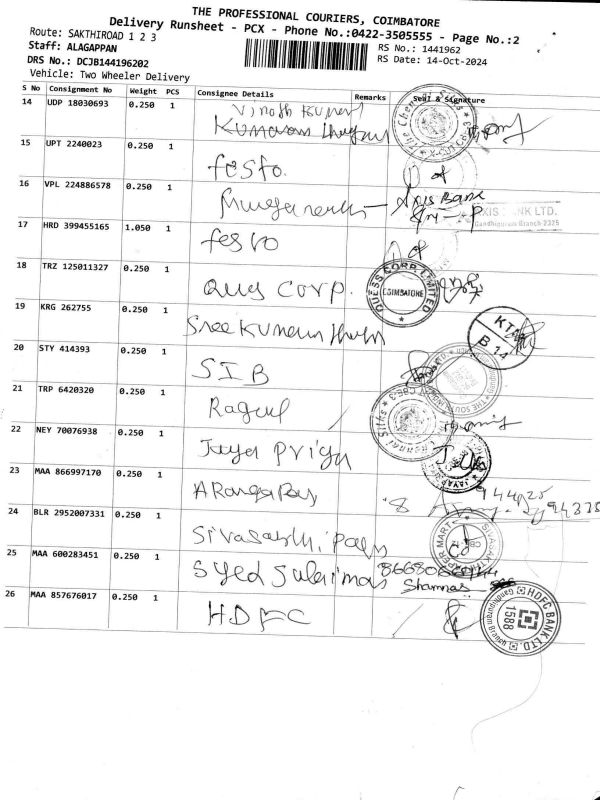 THE PROFESSIONAL COURIERS, COIMBATORE
Delivery Runsheet - PCX - Phone No.:0422-3505555 - Page No.:2
Route: SAKTHIROAD 1 2 3
Staff: ALAGAPPAN
RS No.: 1441962
DRS No.: DCJB144196202
RS Date: 14-Oct-2024
Vehicle: Two Wheeler Delivery
S No Consignment No Weight PCS Consignee Details Remarks Seal & Signature
14 UDP 18030693 0.250 1 Vinoth Kumar
Kumaran
15 UPT 2240023 0.250 1 festo.
16 VPL 224886578 0.250 1 Axis Bank
AXIS BANK LTD.
Gandhipuram Branch
17 HRD 399455165 1.050 1 festo
18 TRZ 125011327 0.250 1 Ques Corp. QUESS CORP LIMITED
COIMBATORE
19 KRG 262755 0.250 1 Sree Kumaran
20 STY 414393 0.250 1 SIB
21 TRP 6420320 0.250 1 Ragul
22 NEY 70076938 0.250 1 Jaya priya
23 MAA 866997170 0.250 1
24 BLR 2952007331 0.250 1
25 MAA 600283451 0.250 1 Syed Sulaiman
26 MAA 857676017 0.250 1 HDFC HDFC BANK LTD.
1588